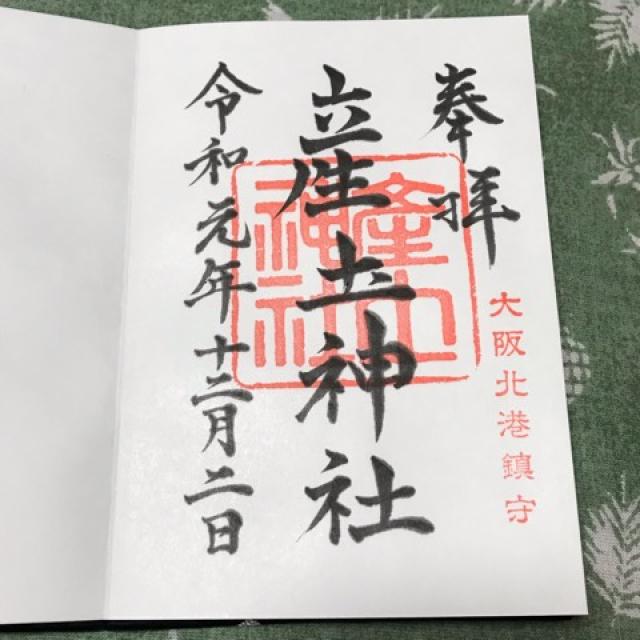 奉拝
大阪北港鎮守
産土神社
産土
神社
令和元年十二月二日